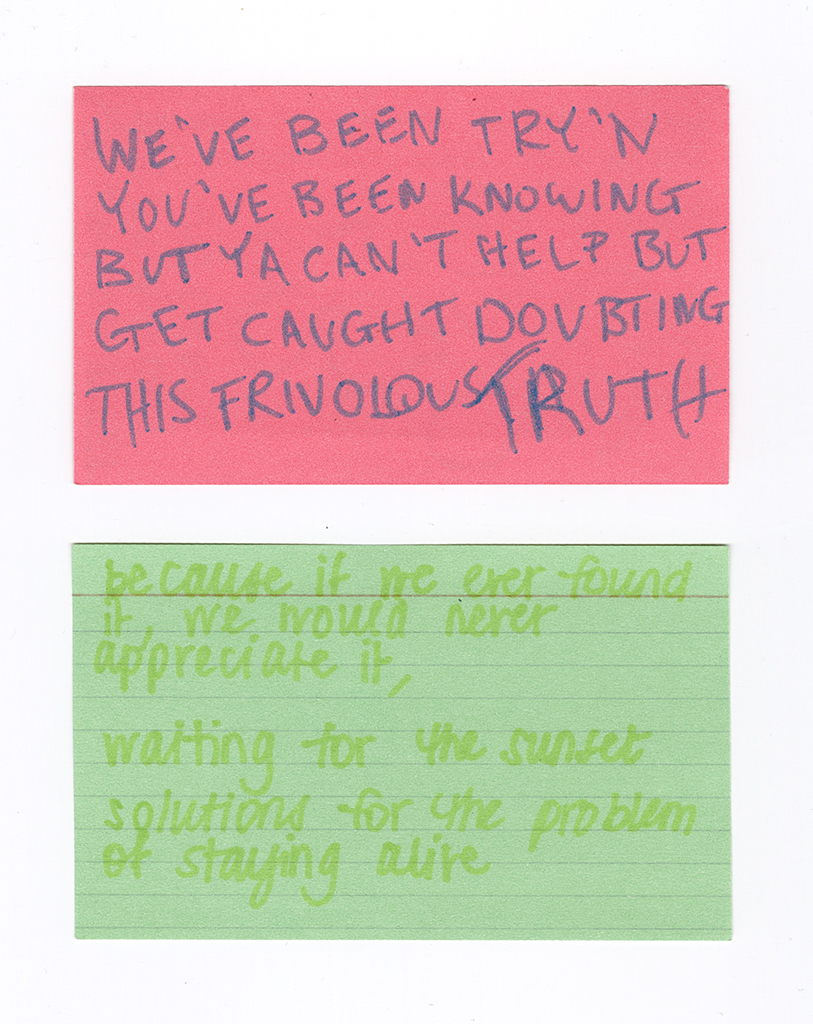 WE'VE BEEN TRY'N
YOU'VE BEEN KNOWING
BUT YA CAN'T HELP BUT
GET CAUGHT DOUBTING
THIS FRIVOLOUS TRUTH
because if we ever found
it, we would never
appreciate it,
waiting for the sunset
solutions for the problem
of staying alive